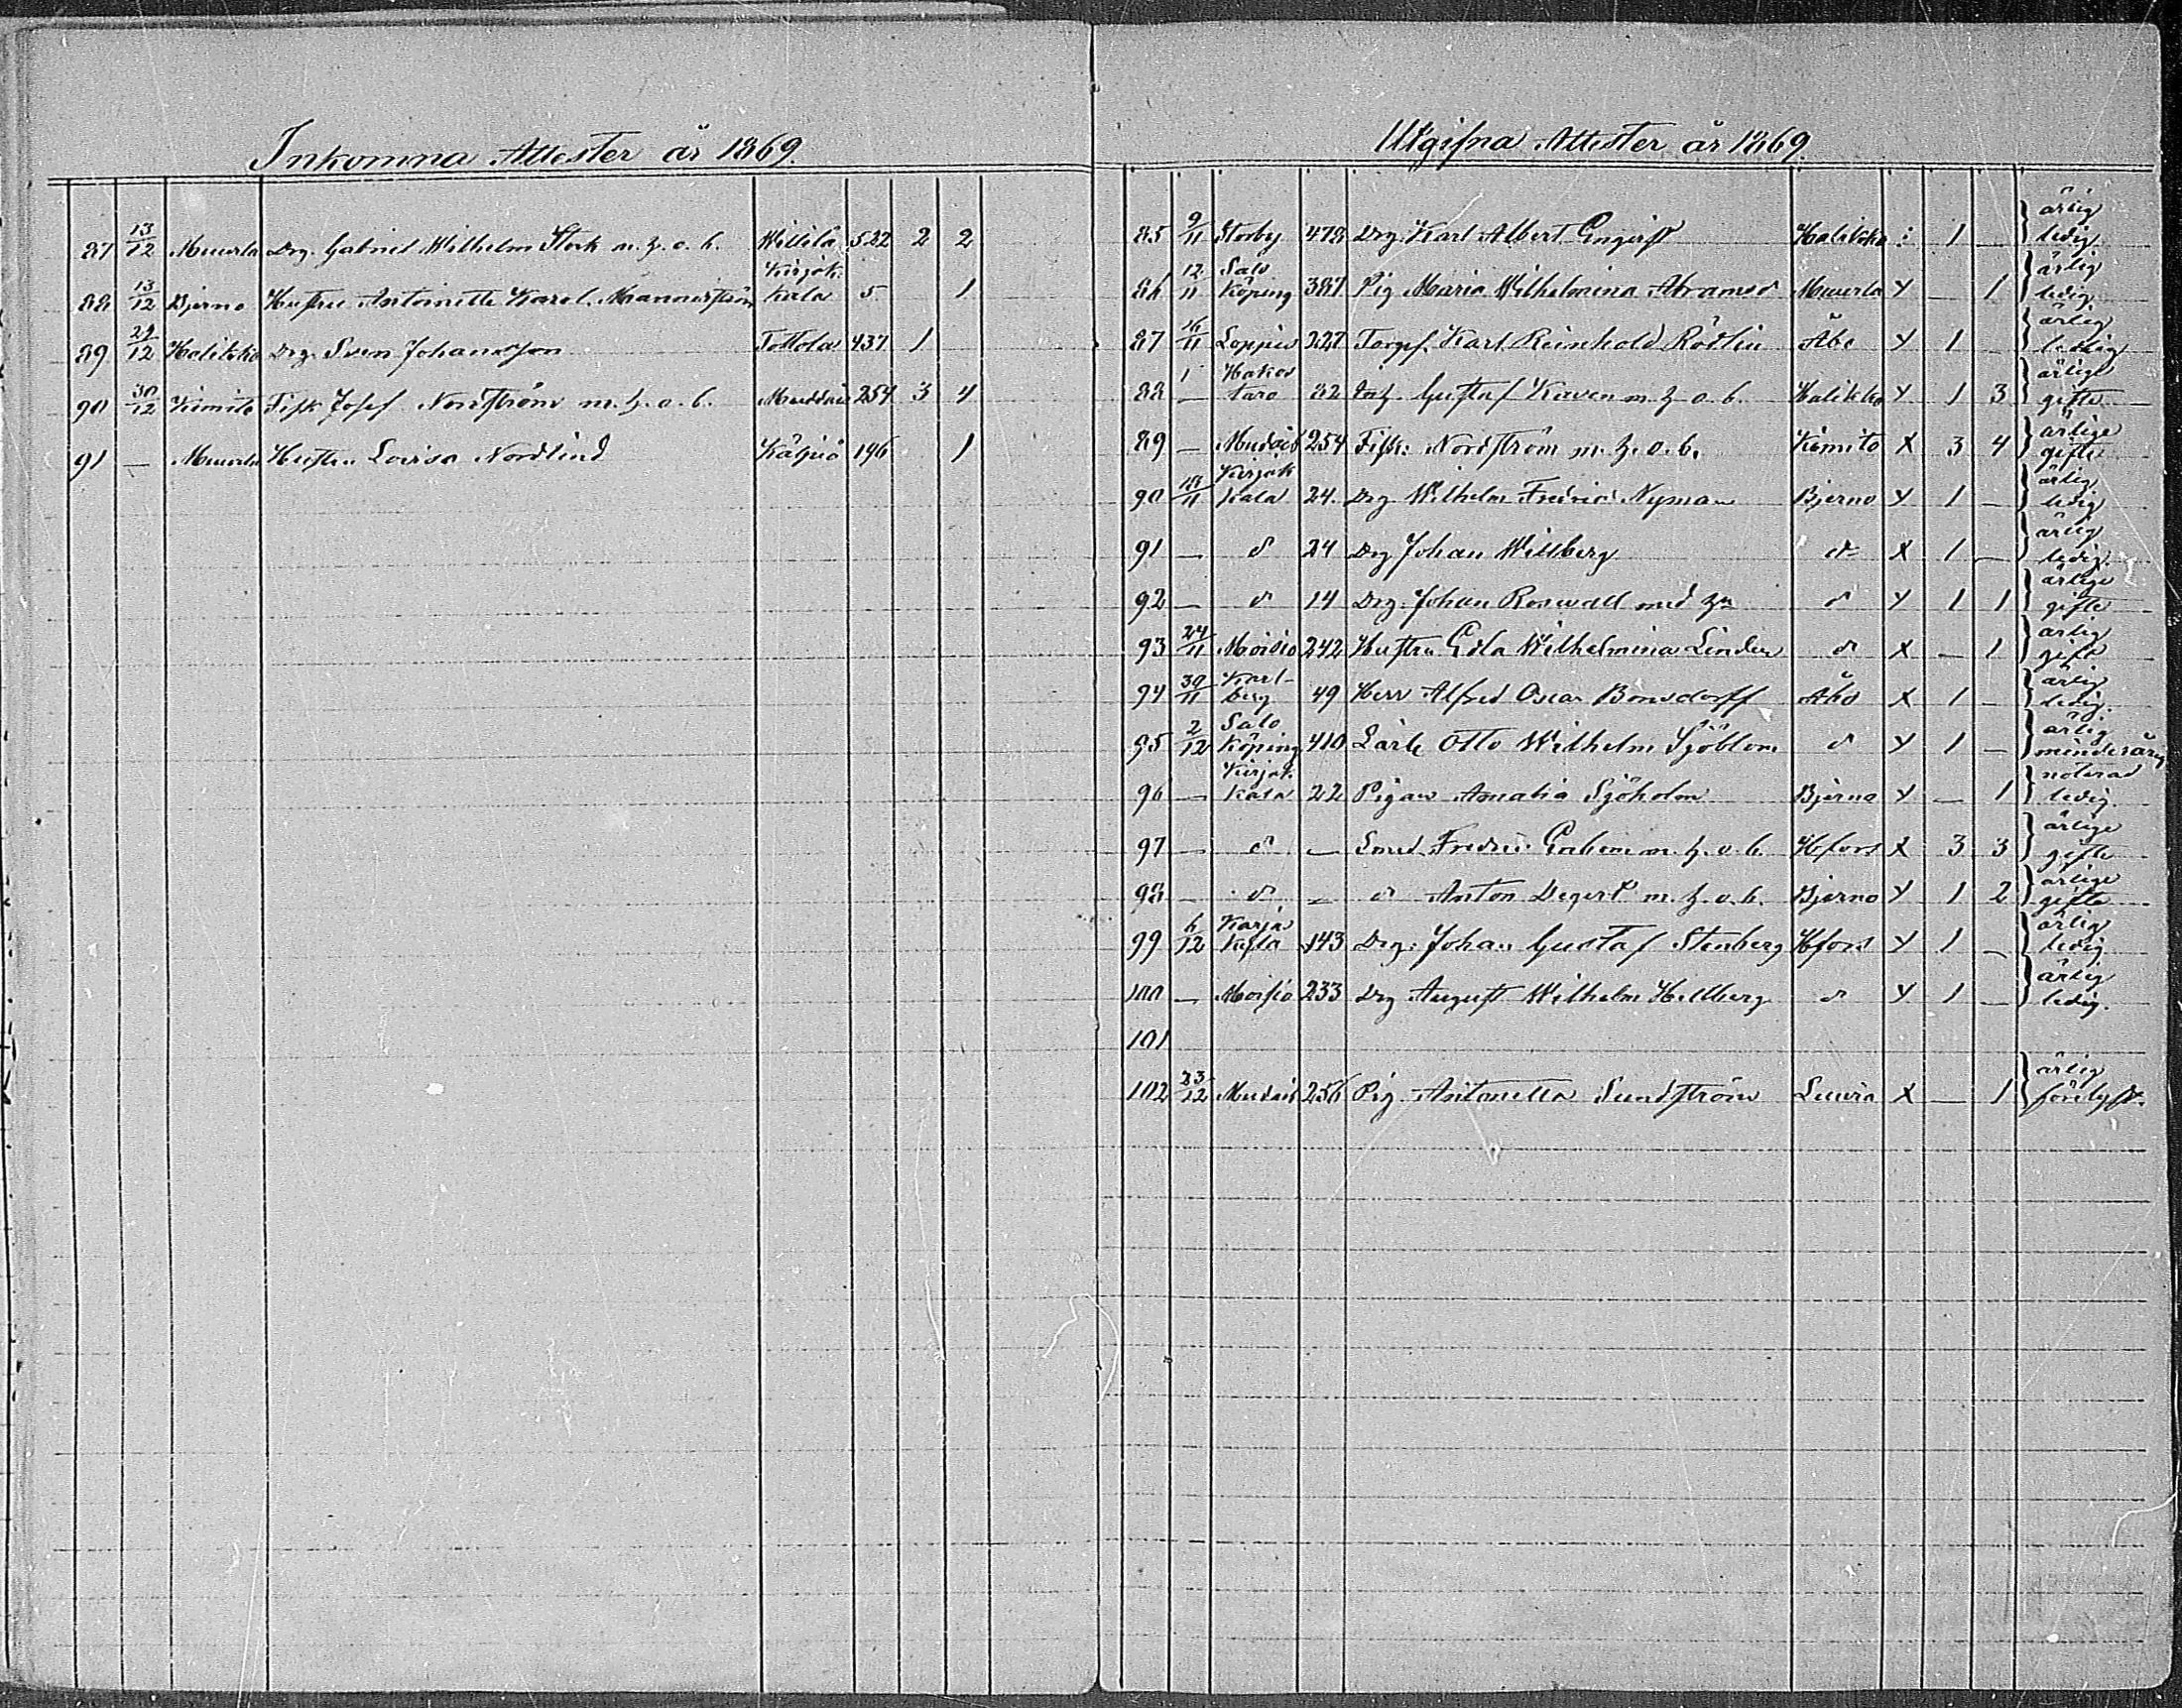 Inkomna Attester år 1869.
87 13/12 Muurla Drg. Gabriel Wilhelm Stork m. h. o. b. Willila 522 2 2
Kirjak.
88 13/12 Bjerno Hustru Antoinette Karol. Mannerström kula 5 1
89 29/12 Halikko Drg. Sven Johansson Tottola 437 1
90 30/12 Kimito Fisk. Josef Nordström m. h. o. b. Muddais 254 3 4
91 — Muurla Hustru Lovisa Nordlind 196 1
Utgifna Attester år 1869.
ärlig
85 9/11 Storby 478 Drg. Karl Albert Halikko 1 — ledig
12 Salo ärlig
86 11 Köping 387 Pig Maria Wilhelmina Abramsd Muurla X — 1 ledig
ärlig
87 16/11 Loppis 227 Karl Reinhold Rödlin Åbo X 1 — ledig
1 Hakos ärlige
88 — taro 82 Gustaf Kaven m. h. o. b. Halikko X 1 3 gifte
ärlige
89 — Mudais 254 Fisk. Nordström m. h. o. b. Kimito X 3 4 gifte
Kirjak ärlig
90 18/11 kala 24. Drg Wilhelm Fredric Nyman Bjerno X 1 — ledig
ärlig
91 — d 24 Drg Johan Willberg d X 1 — ledig
ärlige
92 — d 14 Drg. Johan Roswall med hu d X 1 1 gifte
ärlig
93 24/11 Moisio 242 Hustru Edla Wilhelmina Linden d X — 1 gift
Karl- ärlig
94 30/11 berg 49 Herr Alfred Oscar Bonsdorff Åbo X 1 — ledig.
Salo ärlig
95 2/12 Köping 410 Lärl. Otto Wilhelm Sjöblom d X 1 — minderårig
Kirjak. noterad
96 — kala 22 Pigan Amalia Sjöholm Bjerno X — 1 ledig.
ärlige
97 — d — Smed. Fredric m. h. o. b. Hfors X 3 3 gifte
ärlige
98 — d — d Anton Degert m. h. o. b. Bjerno X 1 2 gifte
Karja ärlig
99 6/12 kyla 143 Drg. Johan Gustaf Stenberg Hfors X 1 — ledig
ärlig
100 — Moisio 233 Drg August Wilhelm Hellberg d X 1 — ledig.
101
ärlig
102 23/12 Mudais 256 Pig. Antonetta Sundström Luvia X — 1 förlyst.